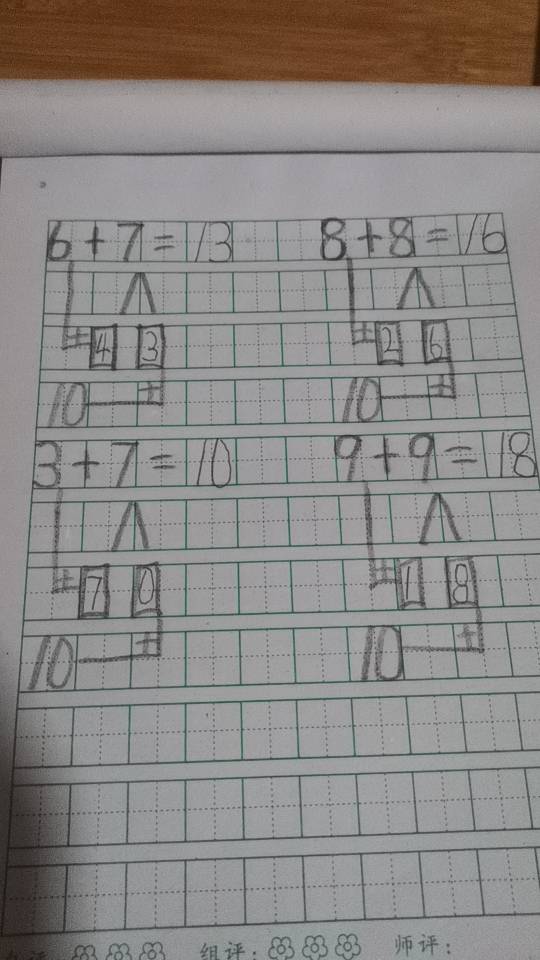 6+7=13 8+8=16
+ 4 3 + 2 6
10 + 10 +
3+7=10 9+9=18
+ 7 0 + 1 8
10 + 10 +
组评: 师评: